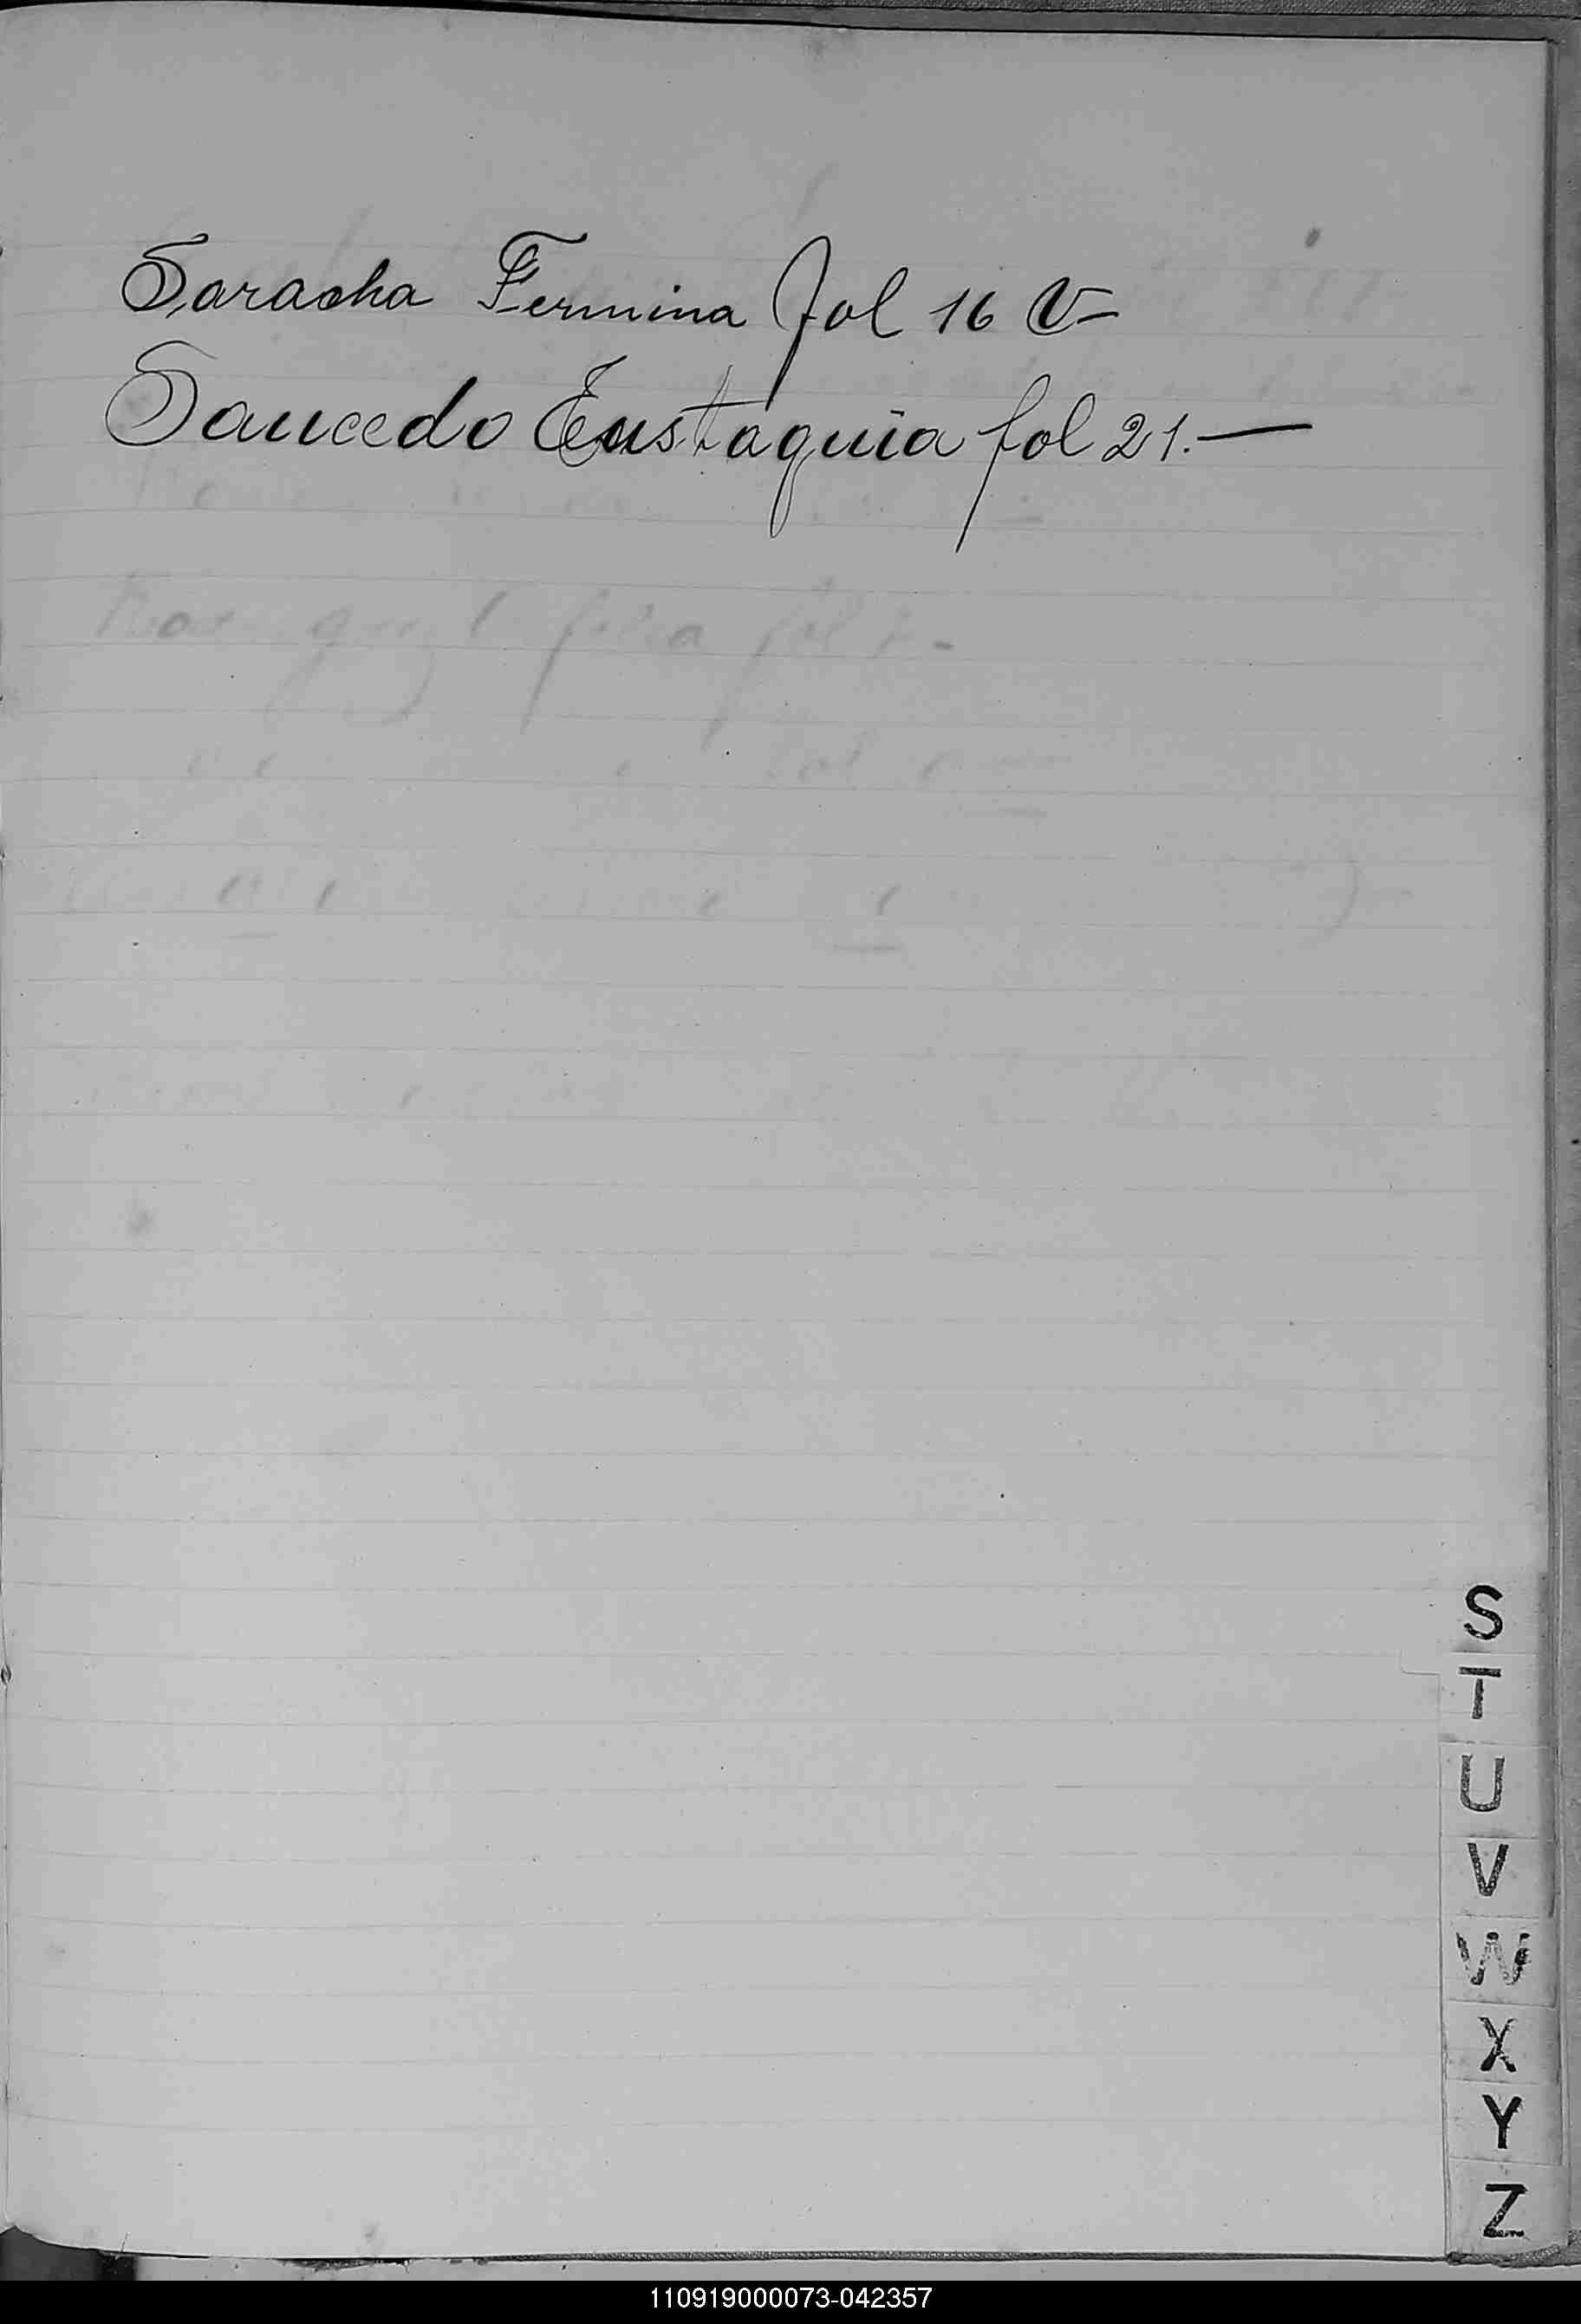 Saracha Fermina fol 16 V-
Saucedo Eustaquia fol 21.—
S
T
U
V
W
X
Y
Z
110919000073-042357